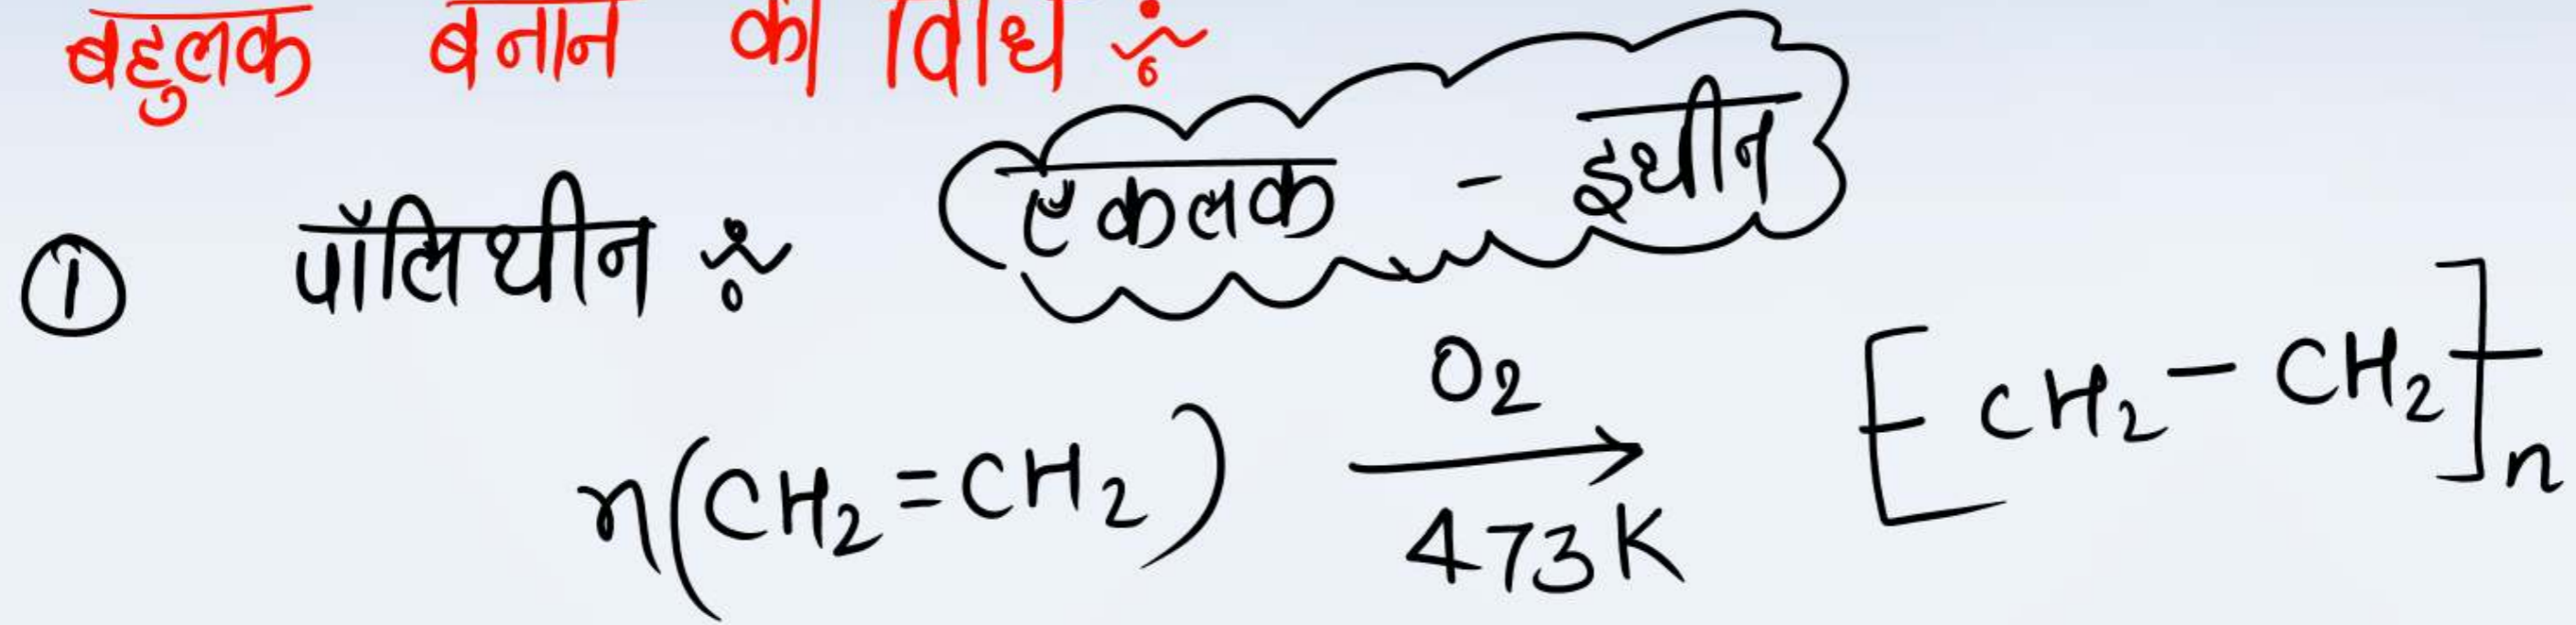 बहुलक बनाने की विधि :-
① पॉलिथीन :- एकलक - इथीन
n(CH₂=CH₂) O₂ → 473K [-CH₂-CH₂-]n